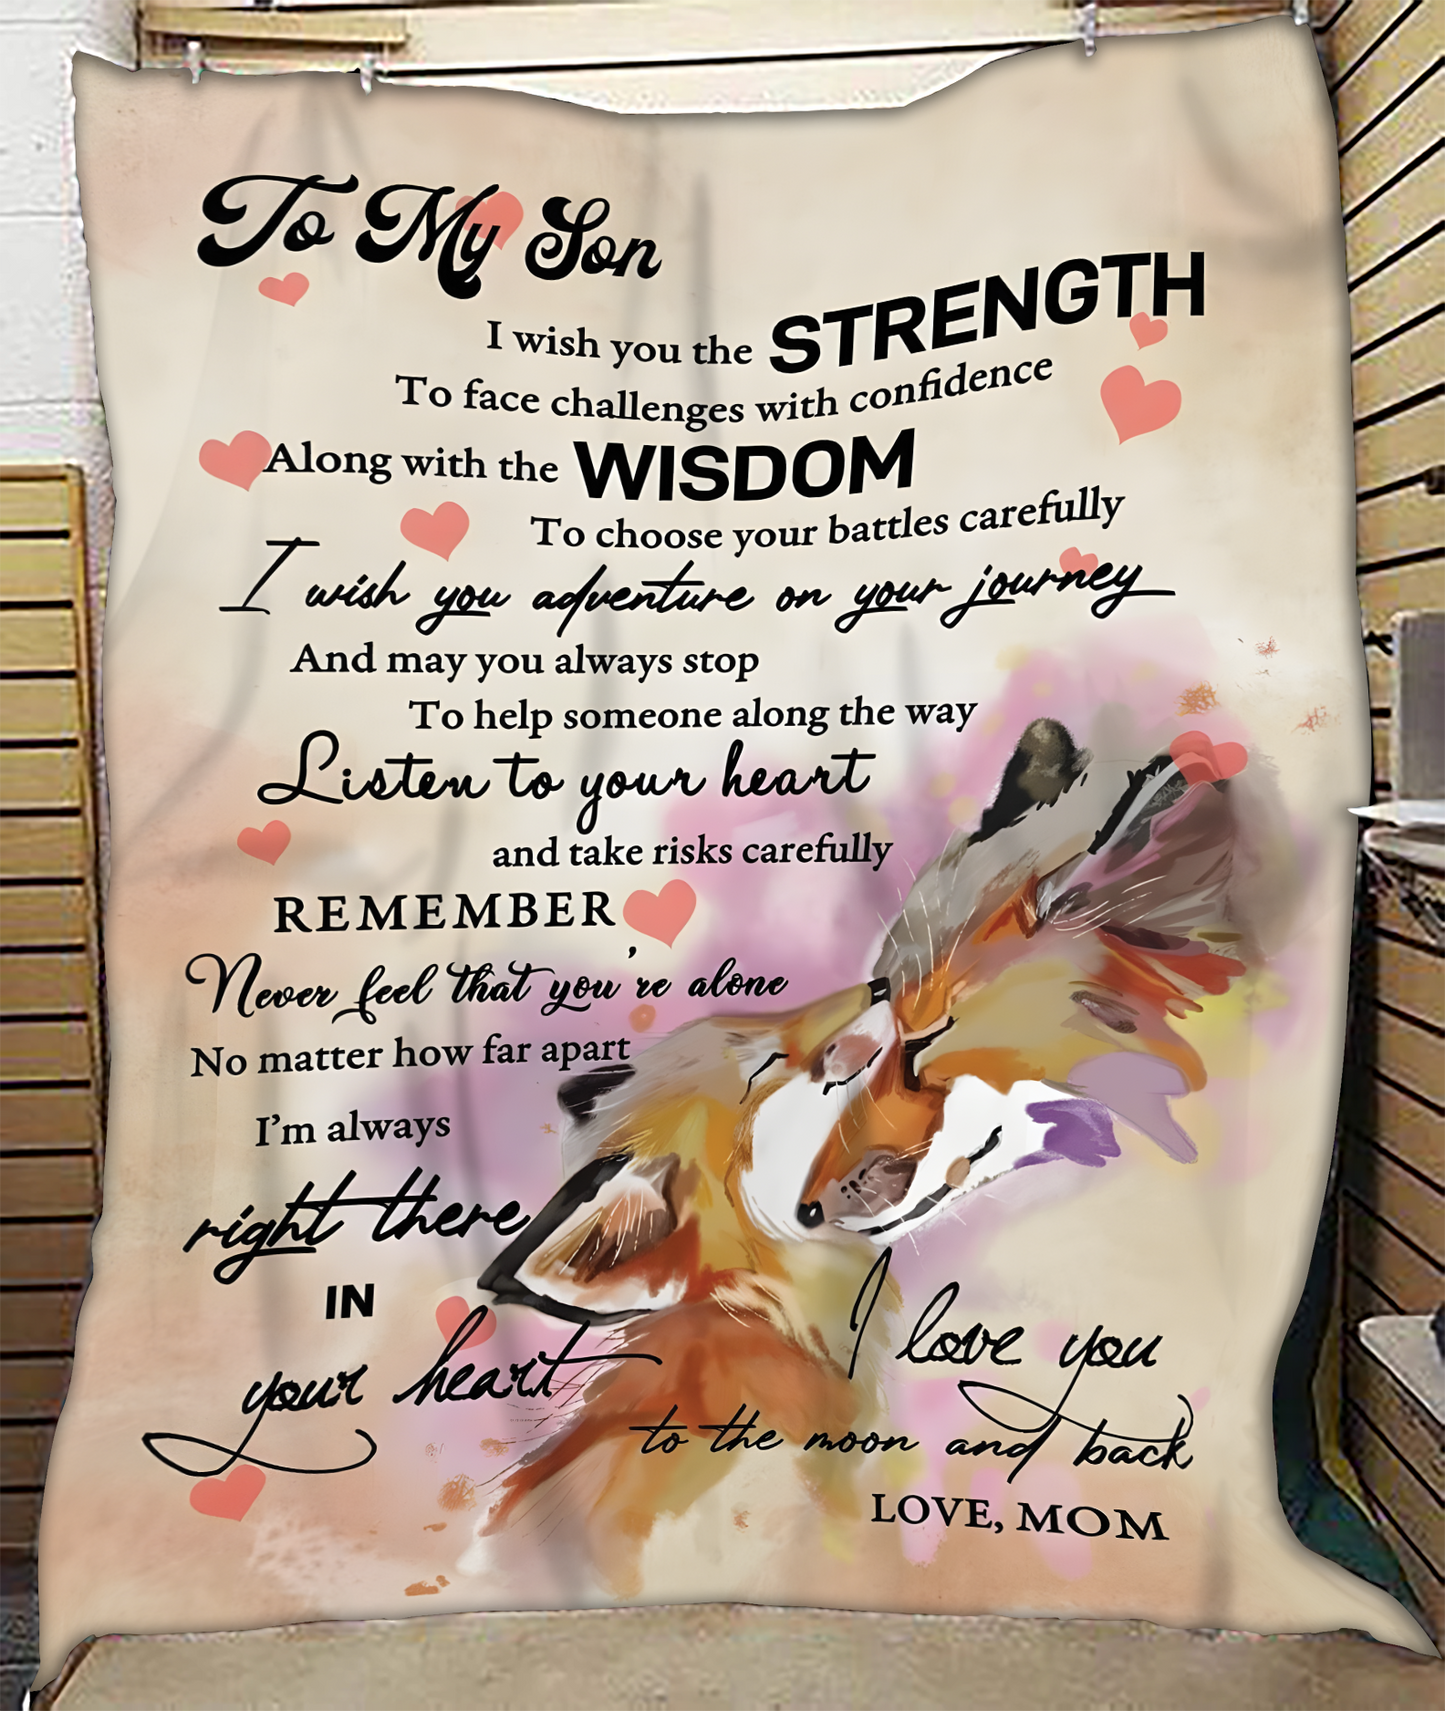 To My Son
I wish you the STRENGTH
To face challenges with confidence
Along with the WISDOM
To choose your battles carefully
I wish you adventure on your journey
And may you always stop
To help someone along the way
Listen to your heart
and take risks carefully
REMEMBER,
Never feel that you're alone
No matter how far apart
I'm always
right there
IN
your heart
I love you
to the moon and back
LOVE, MOM